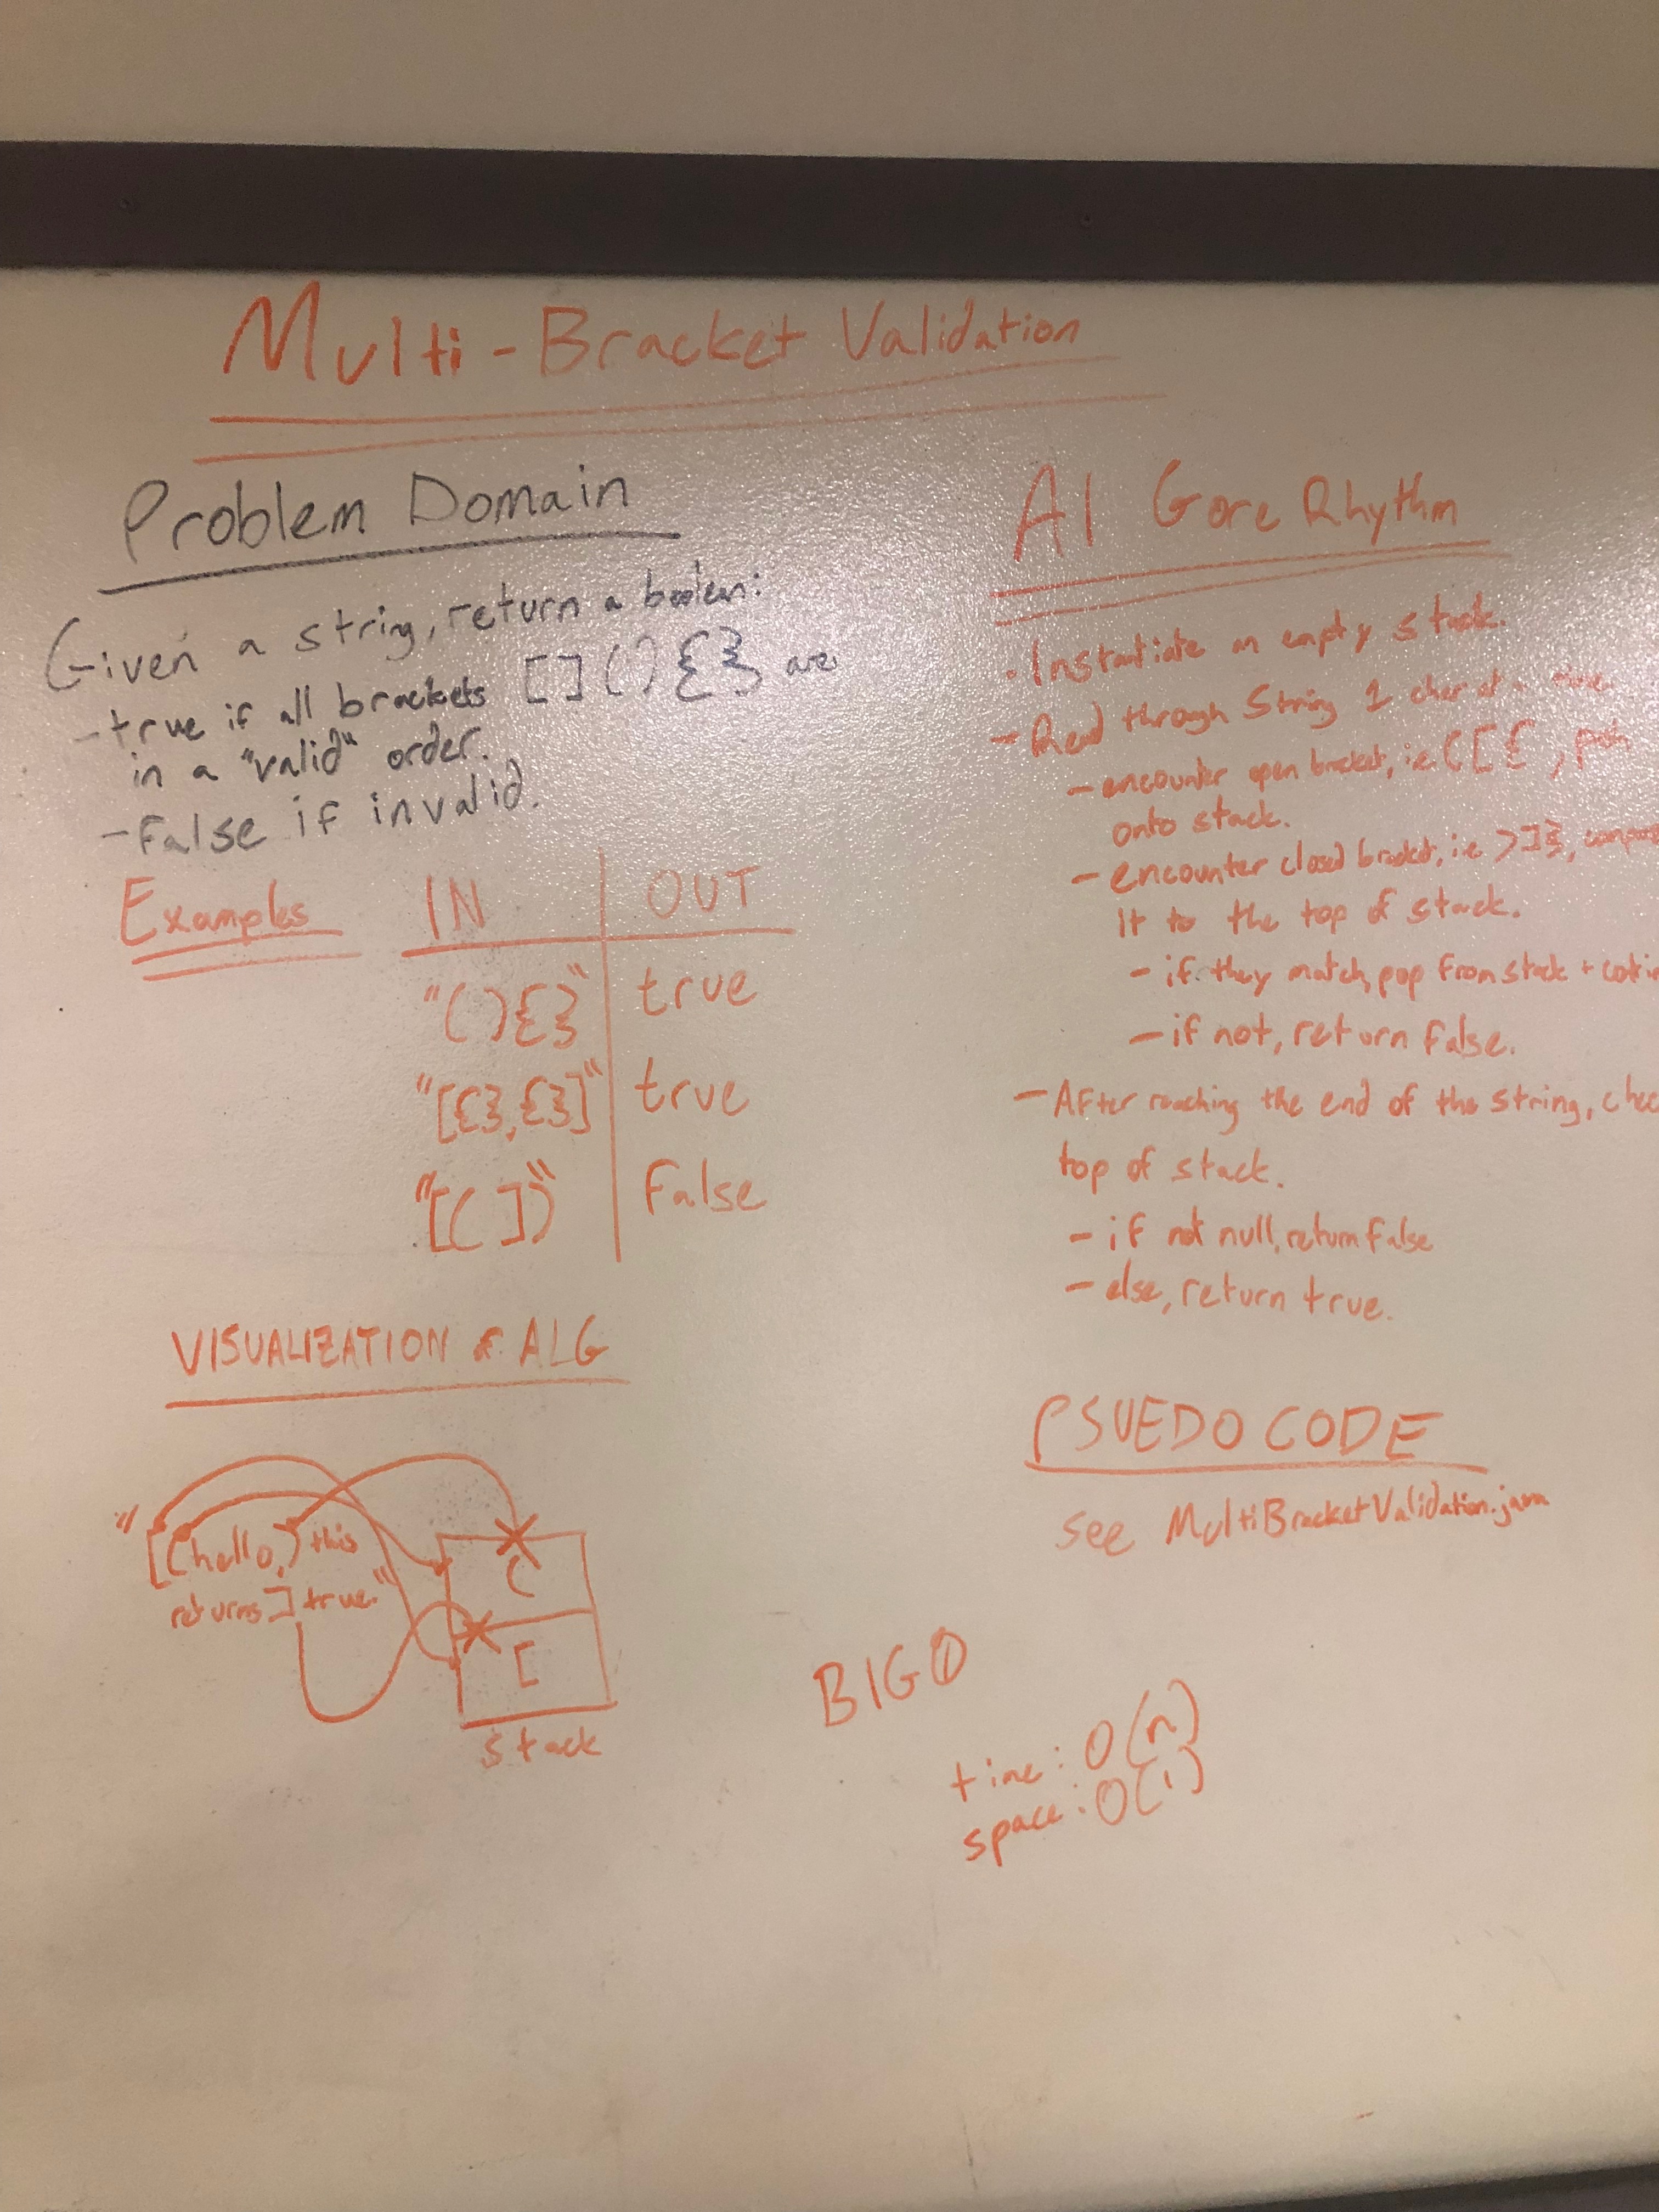 Multi-Bracket Validation
Problem Domain
Given a string, return a boolean:
- true if all brackets [] () {} are
in a "valid" order.
- False if invalid.
Examples IN OUT
"(){}" true
"[{},{}]" true
"[(])" False
VISUALIZATION of ALG
"[(hello,) this
returns] true."
(
[
stack
Al Gore Rhythm
- Instantiate an empty stack.
- Read through String 1 char at a time.
- encounter open bracket, i.e. ( [ {, push
onto stack.
- encounter closed bracket, i.e. ) ] }, compare
it to the top of stack.
- if they match, pop from stack +
- if not, return false.
- After reaching the end of the string,
top of stack.
- if not null, return false
- else, return true.
PSUEDO CODE
see MultiBracketValidation.java
BIG O
time: O(n)
space: O(1)